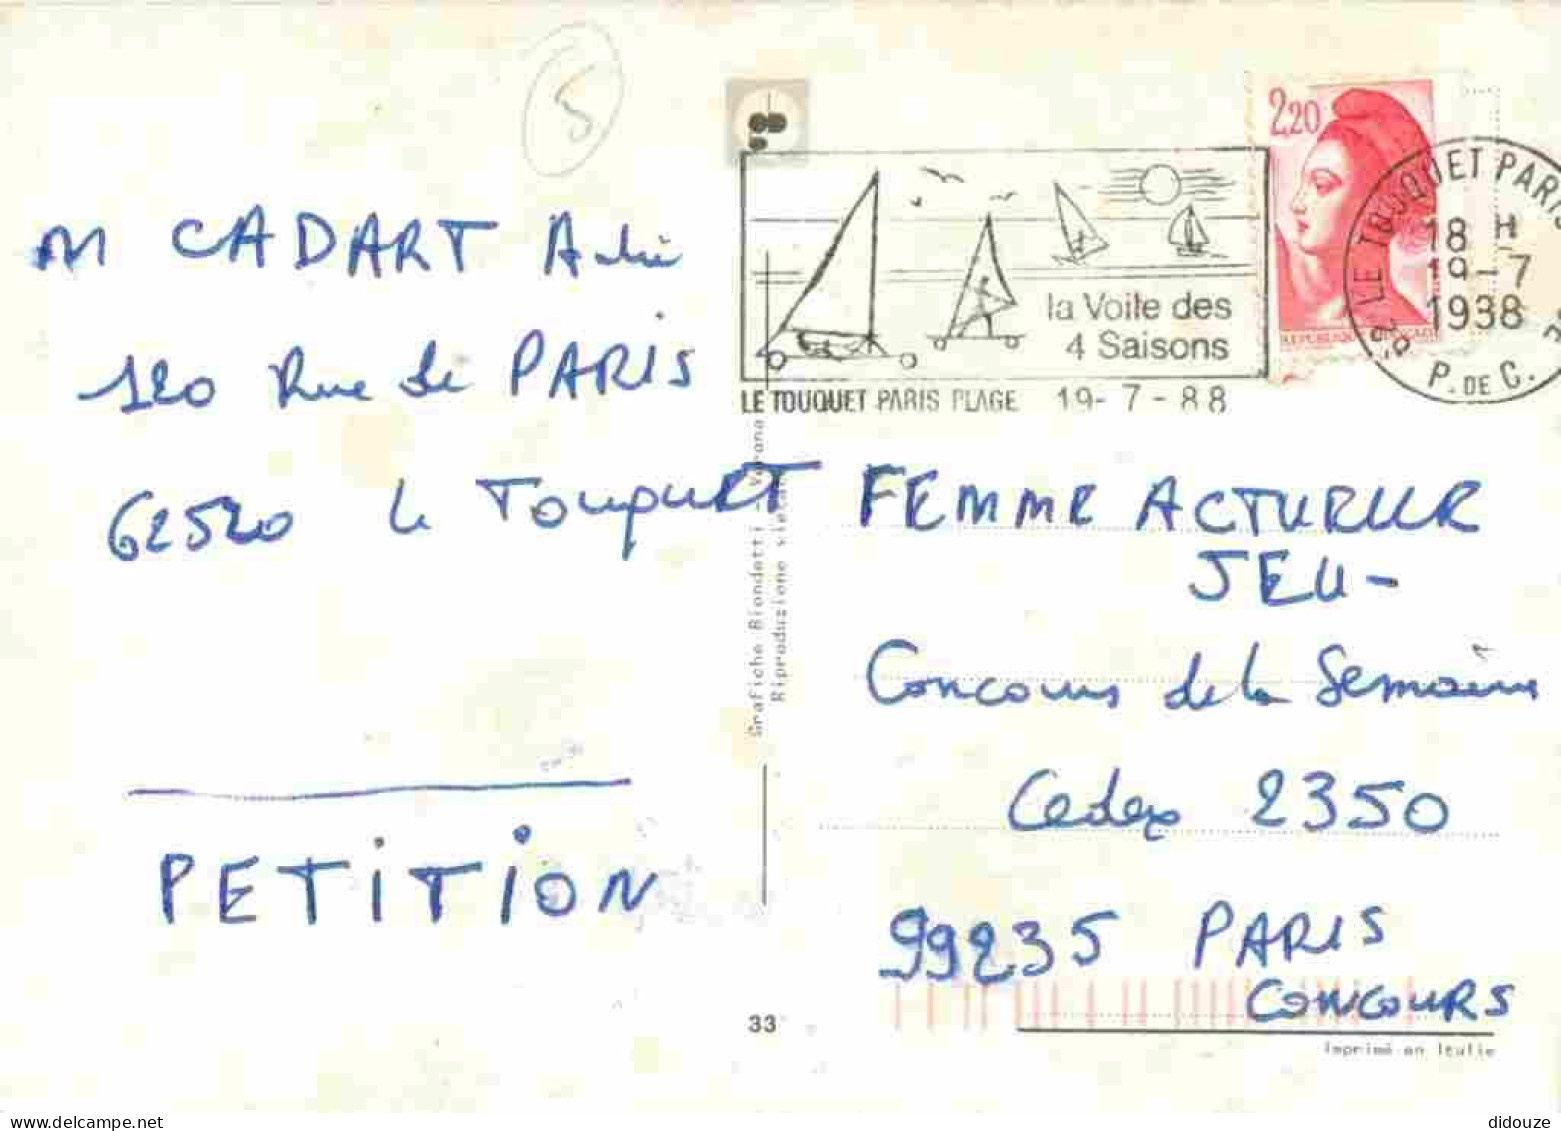 5
M CADART
120 Rue de PARIS
62520 Le TouquET
PETiTiON
Grafiche Biondetti - Verona
Riproduzione vietata
33
2,20
la Voile des
4 Saisons
LE TOUQUET PARIS PLAGE 19-7-88
LE TOUQUET PARIS
18 H
19-7
1938
P. DE C.
FEMME ACTUELLE
JEU-
Concours de la Semaine
Cedex 2350
99235 PARIS
CONCOURS
Imprimé en Italie
didouze